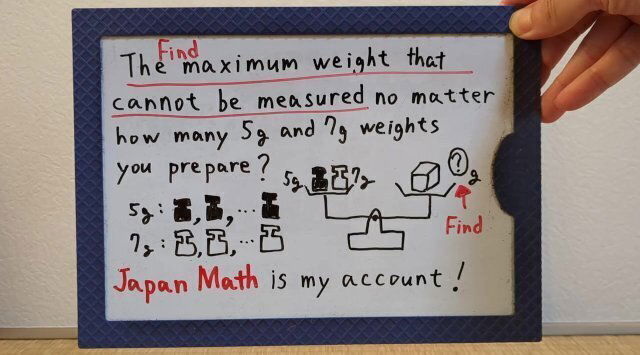 Find
The maximum weight that
cannot be measured no matter
how many 5g and 7g weights
you prepare?
5g 7g ? g
5g: , , ...
7g: , , ...
Find
Japan Math is my account!